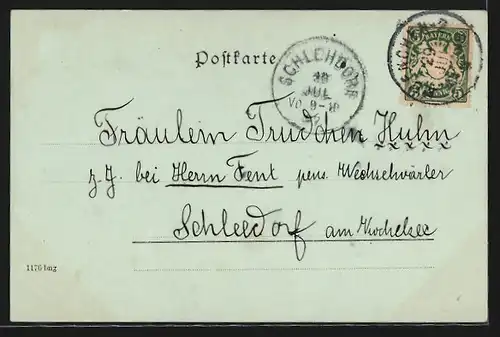 Postkarte
SCHLEHDORF
18
JUL
VO. 9-10
BAYERN
Fräulein Trudchen Huhn
z. Z. bei Herrn Fent pens. Wechselwärter
Schleedorf am Kochelsee